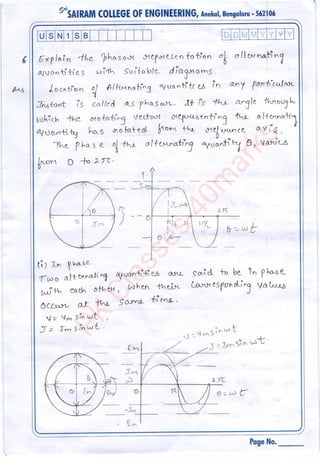 SAIRAM COLLEGE OF ENGINEERING, Anekal, Bengaluru - 562106
USN 1 S B
D D M M Y Y Y Y
6 Explain the phasor representation of alternating
quantities with suitable diagrams.
Ans Location of Alternating quantities in any particular
Instant is called as phasor. It is the angle through
which the rotating vector representing the alternating
quantity has rotated from the reference axis.
The phase of the alternating quantity θ, varies
from 0 to 2π.
Im
θ
0
Im
2π
θ = ωt
(i) In phase.
Two alternating quantities are said to be In phase
with each other, when their corresponding values
occur at the same time.
V = Vm sin ωt
I = Im sin ωt.
Em
V = Vm sin ωt
I = Im sin ωt.
Im
ω
θ
0
π
2π
θ = ωt
-Im
- Em
Page No.